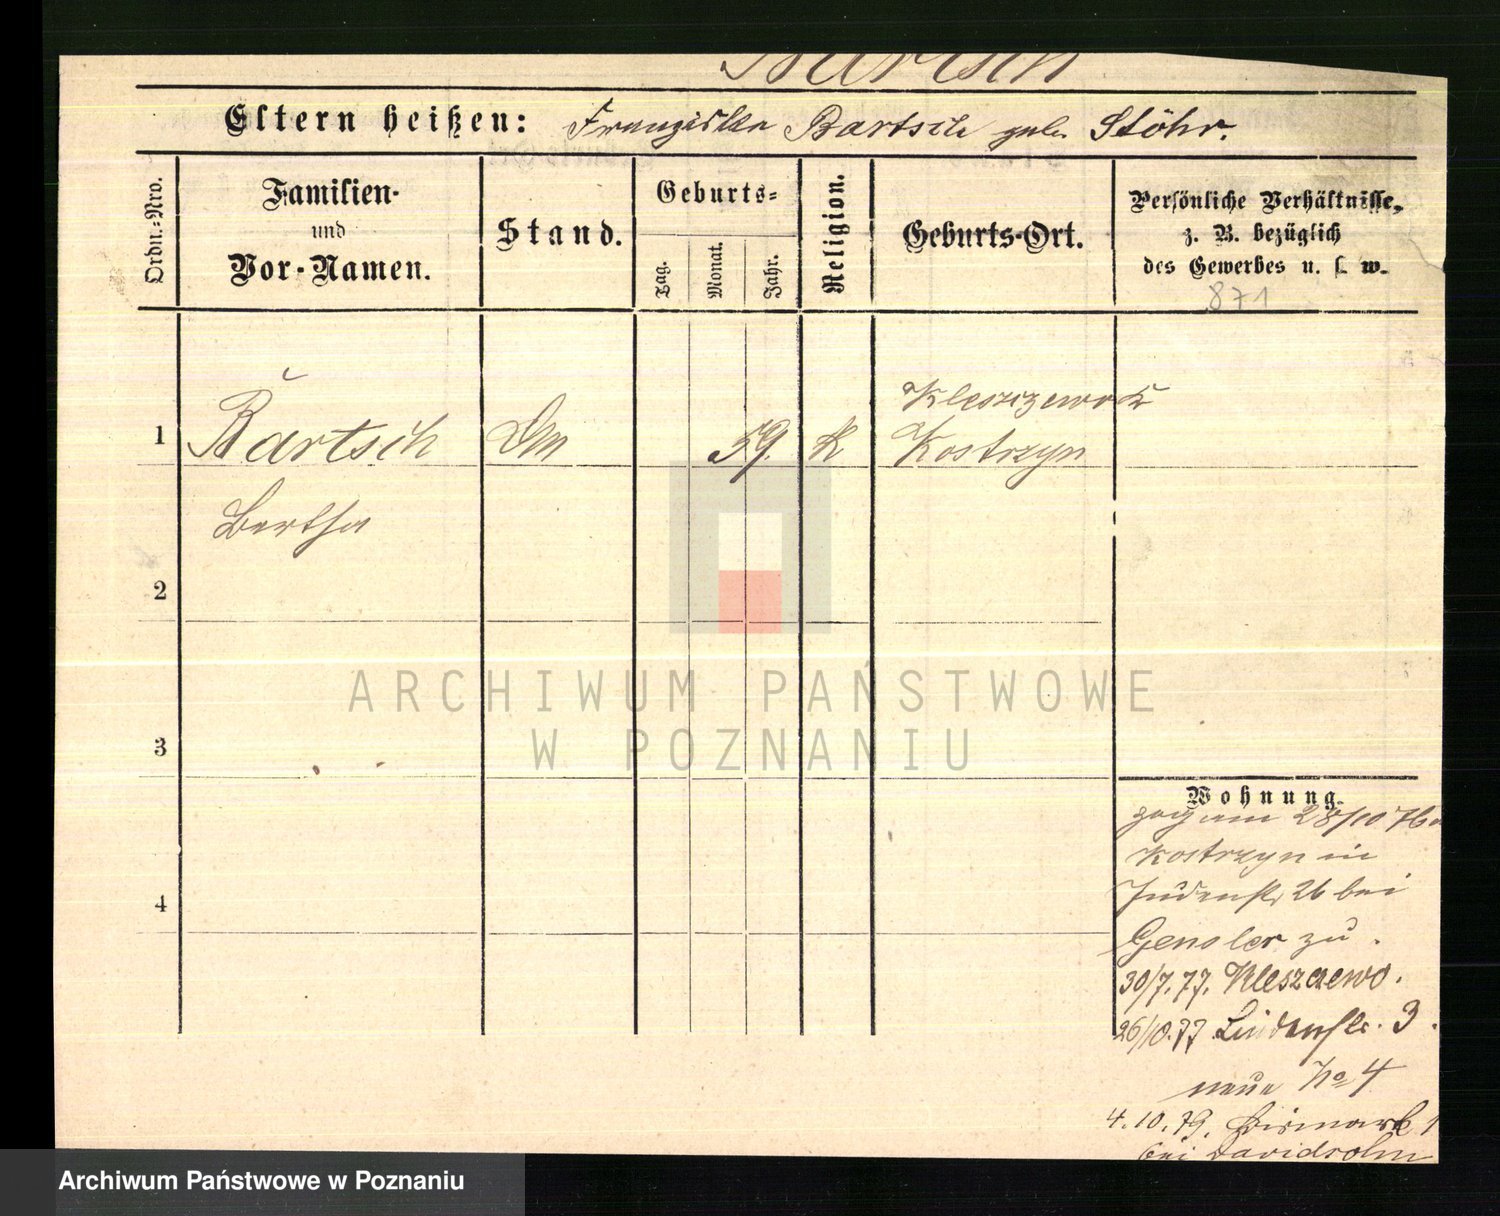 Bartsch
Eltern heißen: Franziska Bartsch geb. Stöhr.
Ordn.-Nro.
Familien-
und
Vor-Namen.
Stand.
Geburts-
Tag.
Monat.
Jahr.
Religion.
Geburts-Ort.
Persönliche Verhältnisse,
z. B. bezüglich
des Gewerbes u. s. w.
871
Kleszczewo
1 Bartsch 59. K Kostrzyn
Bertha
2
ARCHIWUM PAŃSTWOWE
W POZNANIU
3
Wohnung.
zog am 28/10 76
Kostrzyn in
4
Judenstr 26 bei
Gensler zu.
30/7.77. Kleszczewo.
26/10.77 Lindenstr. 3.
neue No 4
4.10.79. Bismarck 1
bei Davidsohn
Archiwum Państwowe w Poznaniu